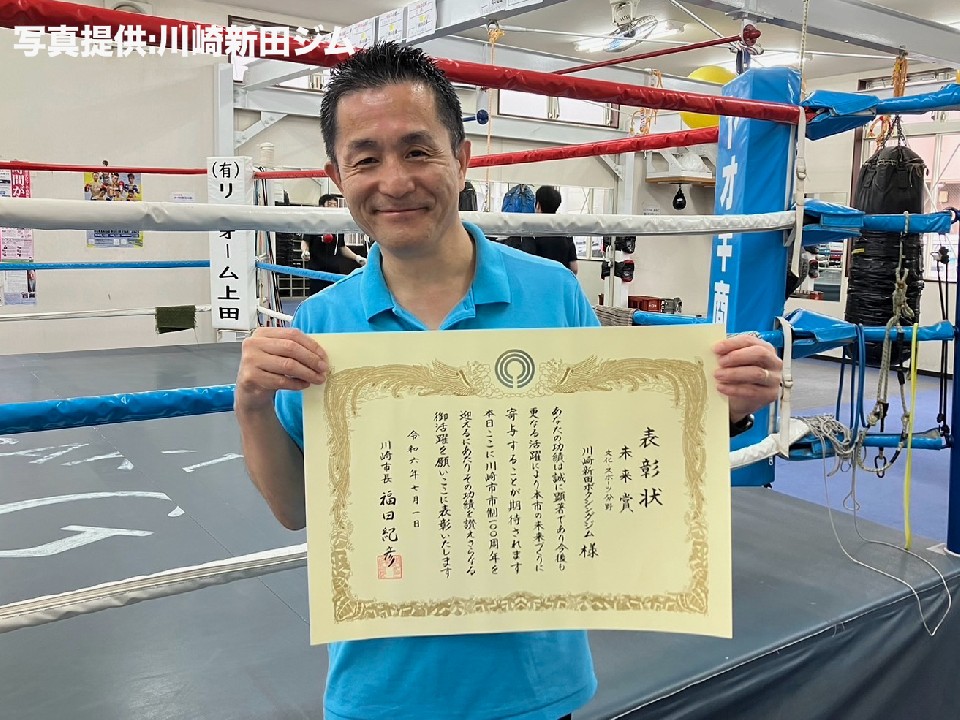 写真提供:川崎新田ジム
(有)リフォーム上田
表彰状
未来賞
文化・スポーツ分野
川崎新田ボクシングジム 様
あなたの功績は誠に顕著であり今後も
更なる活躍により本市の未来づくりに
寄与することが期待されます
本日ここに川崎市市制一〇〇周年を
迎えるにあたりその功績を讃えさらなる
御活躍を願いここに表彰いたします
令和六年七月一日
川崎市長 福田紀彦